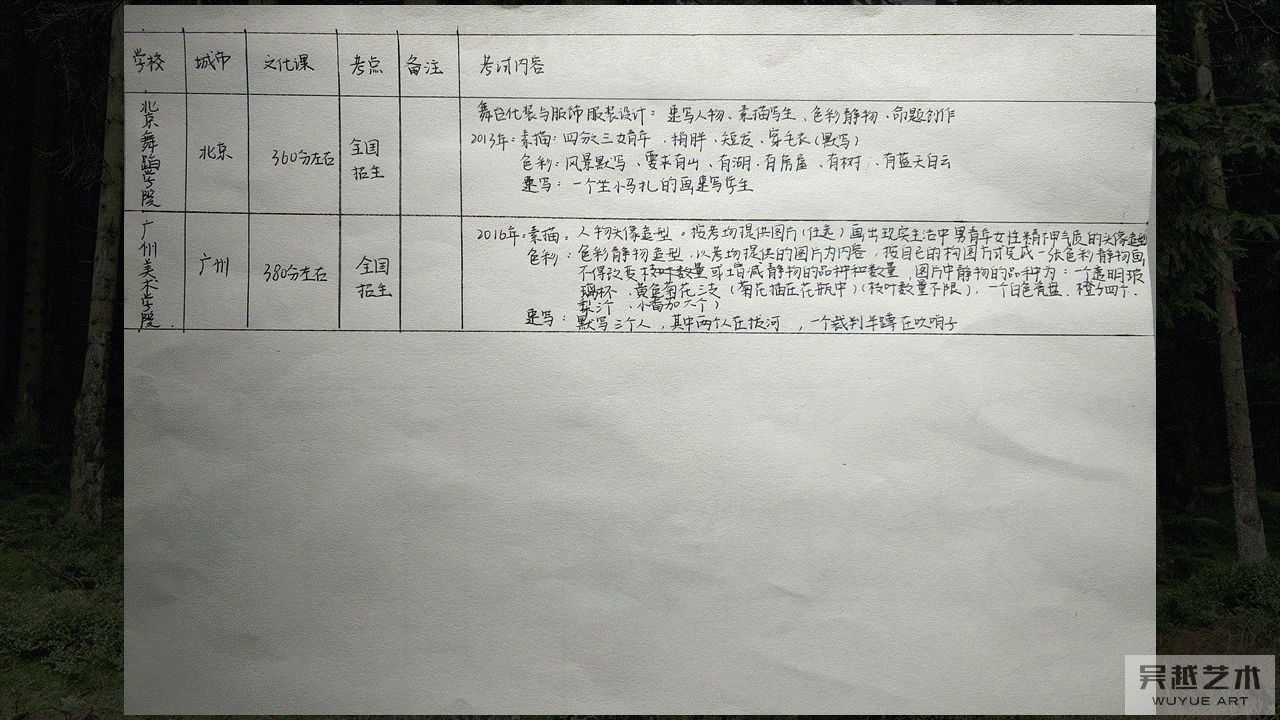 学校 城市 文化课 考点 备注 考试内容
北京舞蹈学院 北京 360分左右 全国招生
舞台化装与服饰服装设计：速写人物、素描写生、色彩静物、命题创作
2013年：素描：四分之三女青年、稍胖、短发、穿毛衣（默写）
色彩：风景默写、要求有山、有湖、有房屋、有树、有蓝天白云
速写：一个坐小马扎的画速写学生
广州美术学院 广州 380分左右 全国招生
2016年：素描：人物头像造型。按考场提供图片（任选）画出现实生活中男青年女性精神气质的头像造型
色彩：色彩静物造型，以考场提供的图片为内容，按自己的构图方式完成一张色彩静物画，
不得改变枝叶数量或增减静物的品种和数量，图片中静物的品种为：一个透明玻
璃杯、黄色菊花三支（菊花插在花瓶中）（枝叶数量不限），一个白色瓷盘、橙子四个、
小番茄六个）
速写：默写三个人，其中两个人在拔河，一个裁判半蹲在吹哨子
吴越艺术
WUYUE ART